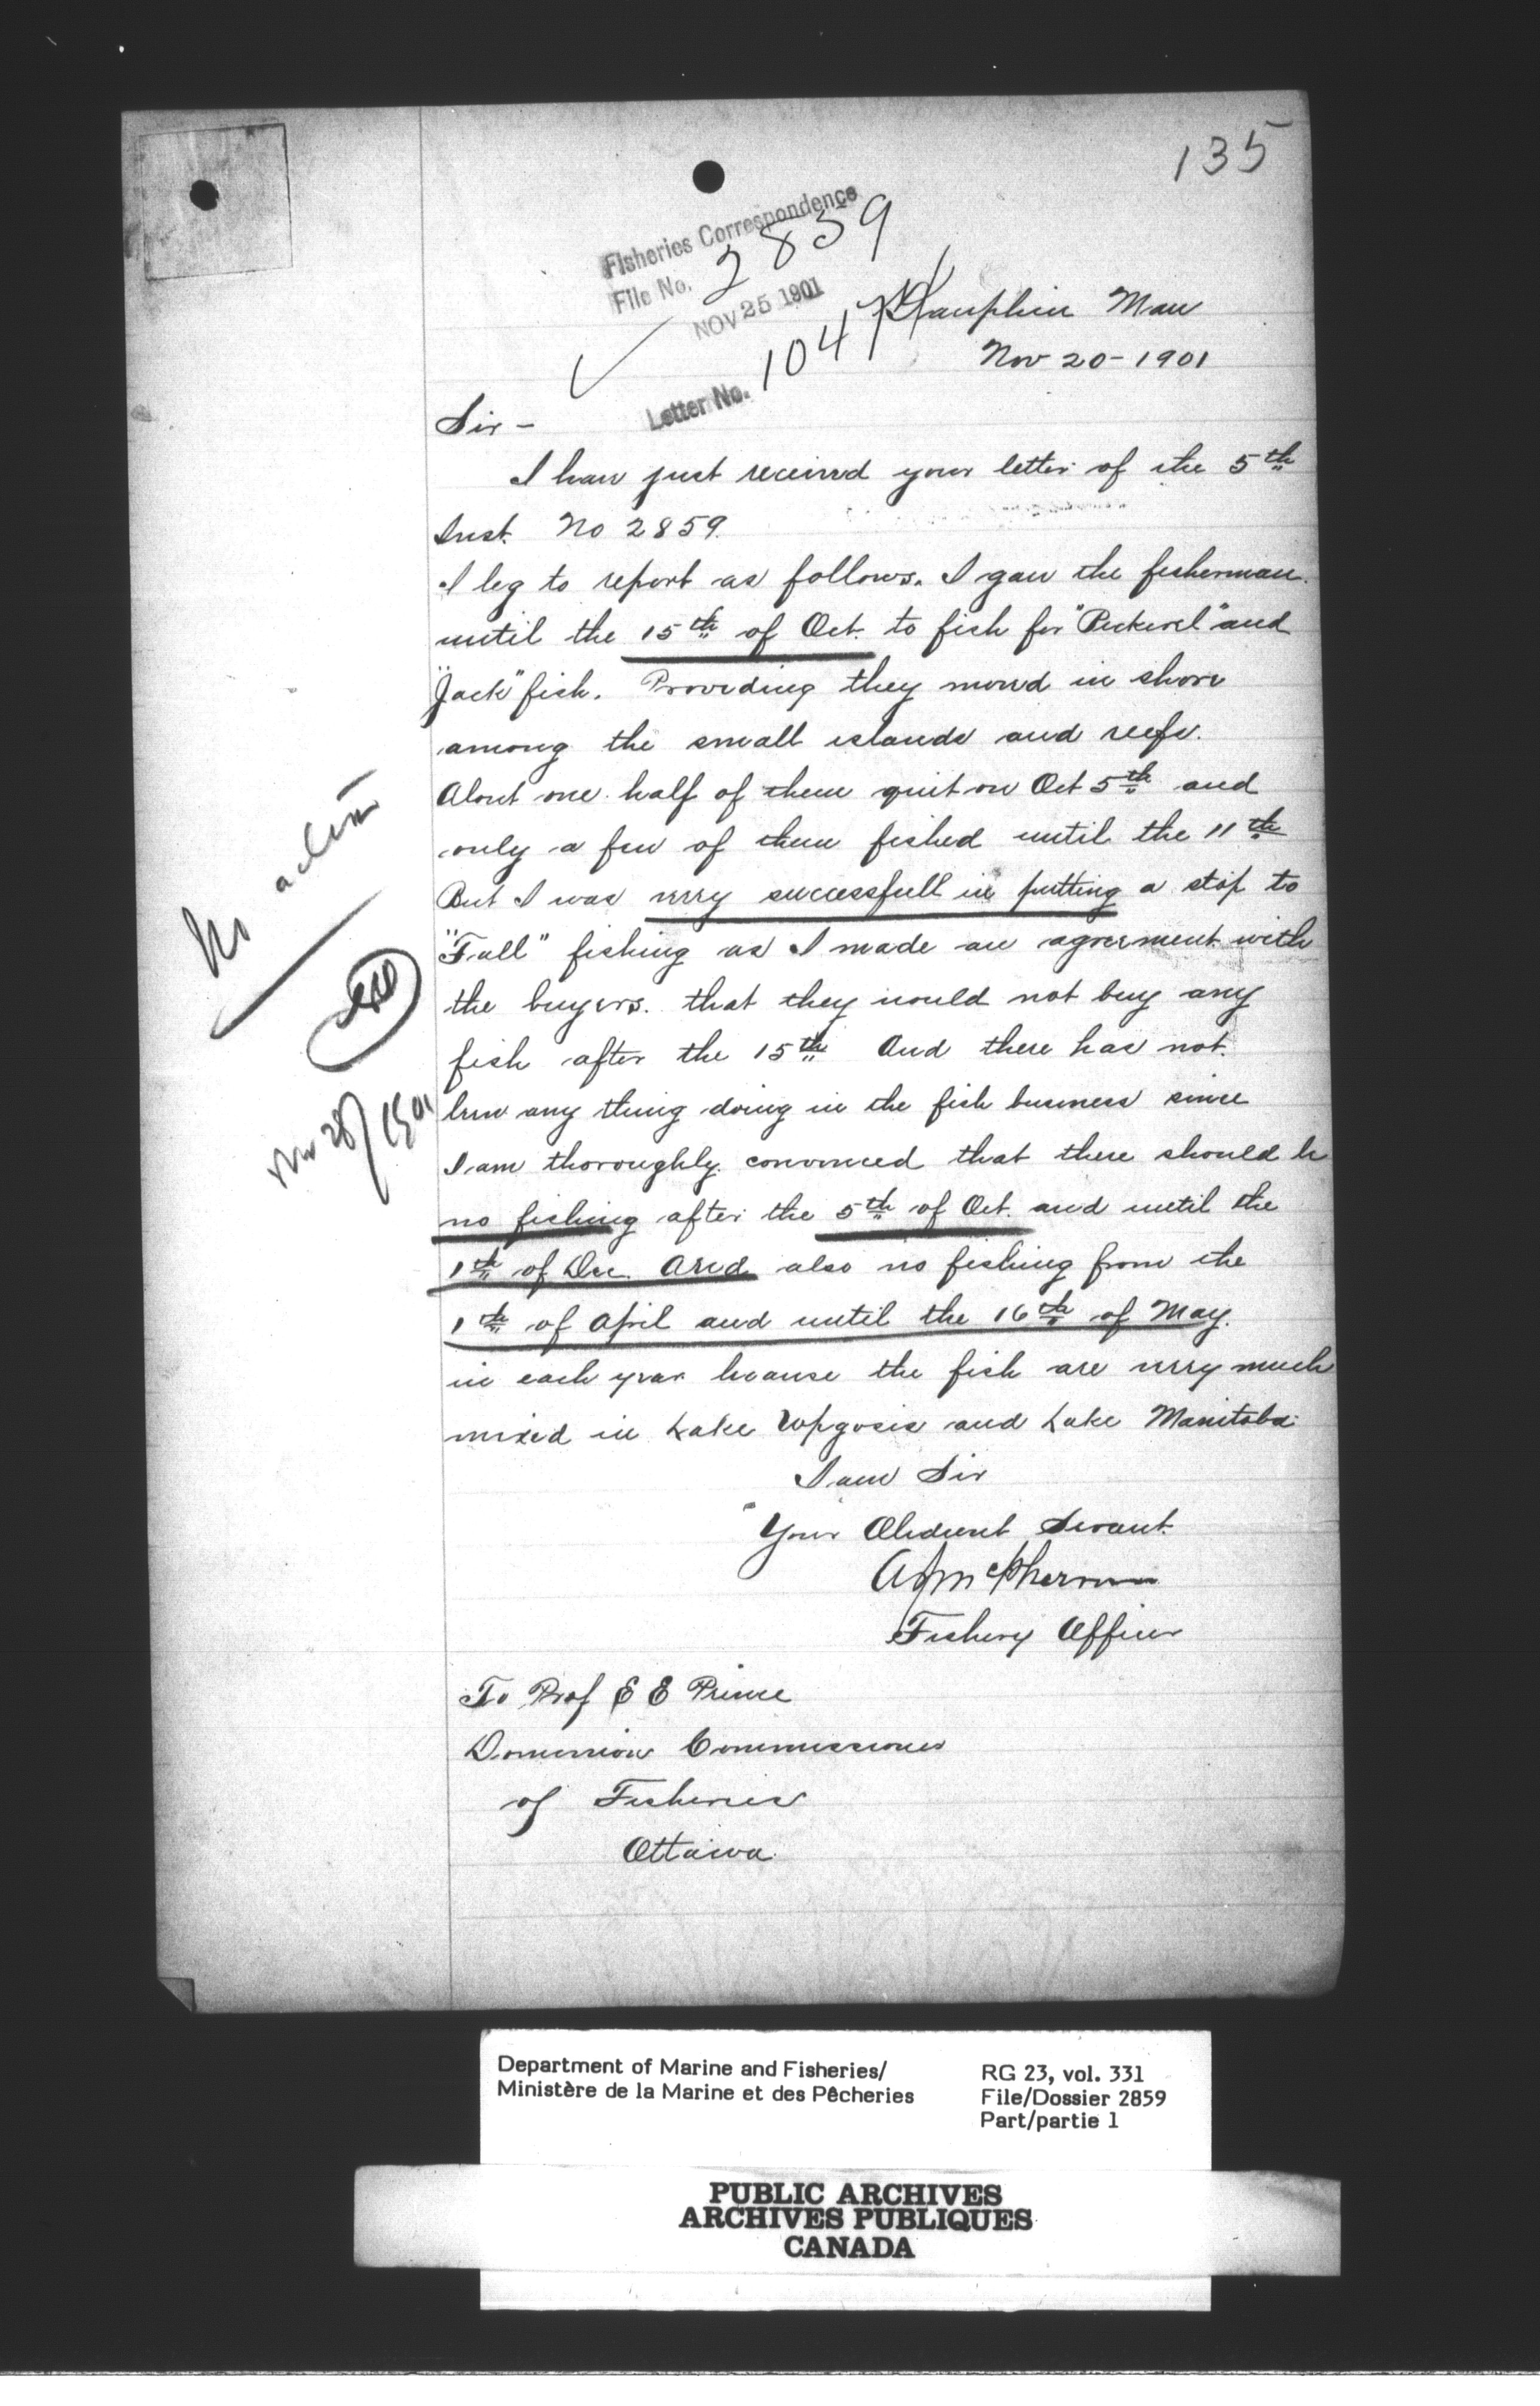 135
Fisheries Correspondence
File No. 2859
NOV 25 1901
Letter No. 1047
Dauphin Man
Nov 20 - 1901
Sir -
I have just received your letter of the 5th
Inst. No 2859.
I beg to report as follows. I gave the fisherman
until the 15th of Oct. to fish for "Pickerel" and
"Jack" fish. Providing they moved in shore
among the small islands and reefs.
About one half of them quit on Oct 5th and
only a few of them fished until the 11th
But I was very successfull in putting a stop to
"Fall" fishing as I made an agreement with
the buyers. that they would not buy any
fish after the 15th And there has not
been any thing doing in the fish business since
I am thoroughly convinced that there should be
no fishing after the 5th of Oct. and until the
1th of Dec. And also no fishing from the
1th of April and until the 16th of May.
in each year because the fish are very much
mixed in Lake Wpgosis and Lake Manitoba
I am Sir
Your Obedient Servant.
A McPherson
Fishery Officer
To Prof E E Prince
Dominion Commissioner
of Fisheries
Ottawa.
No action
Nov 28/1901
Department of Marine and Fisheries/
Ministère de la Marine et des Pêcheries
RG 23, vol. 331
File/Dossier 2859
Part/partie 1
PUBLIC ARCHIVES
ARCHIVES PUBLIQUES
CANADA